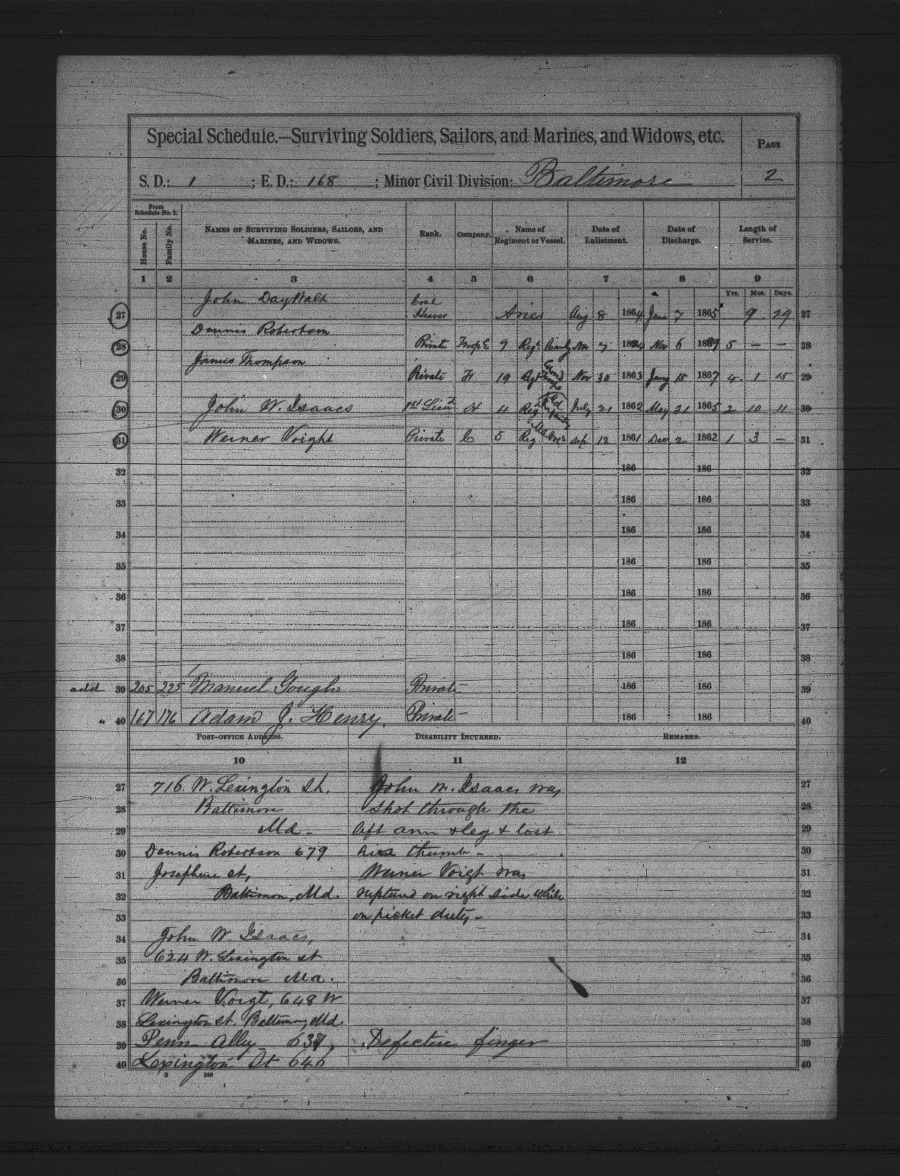 Special Schedule.—Surviving Soldiers, Sailors, and Marines, and Widows, etc.
Page
2
S. D.: 1 ; E. D.: 168 ; Minor Civil Division: Baltimore
From Schedule No. 1.
House No.
Family No.
Names of Surviving Soldiers, Sailors, and Marines, and Widows.
Rank.
Company.
Name of Regiment or Vessel.
Date of Enlistment.
Date of Discharge.
Length of Service.
1 2 3 4 5 6 7 8 9
Yrs. Mos. Days.
27 John DayWalt Coal Heaver Aries Aug 8 1864 June 7 1865 9 29 27
28 Dennis Robertson Private Troop E 9 Reg. 7 Nov 6 5 — — 28
29 James Thompson Private H 19 Reg Nov 30 1863 Jany 15 1867 4 1 15 29
30 John W. Isaacs 1st Lieut H 4 Reg Md Infantry July 21 1862 May 21 1865 2 10 11 30
31 Werner Voight Private C 5 Reg Sep 12 1861 Dec 2 1862 1 3 — 31
32 186 186 32
33 186 186 33
34 186 186 34
35 186 186 35
36 186 186 36
37 186 186 37
38 186 186 38
add 39 205 225 Manuel Gough Private 186 186 39
" 40 167 176 Adam J. Henry. Private 186 186 40
Post-office Address.
Disability Incurred.
Remarks.
10 11 12
27 716 W. Lexington St. John W. Isaacs was 27
28 Baltimore shot through the 28
29 Md. left arm & leg & lost 29
30 Dennis Robertson 679 his thumb — 30
31 Josephine St, Werner Voigt was 31
32 Baltimore, Md. ruptured on right side while 32
33 on picket duty — 33
34 John W. Isaacs, 34
35 624 W. Lexington St 35
36 Baltimore Md. 36
37 Werner Voigt, 648 W 37
38 Lexington St. Baltimore, Md. 38
39 Penn Ally 637, Defective finger 39
40 Lexington St 646 40